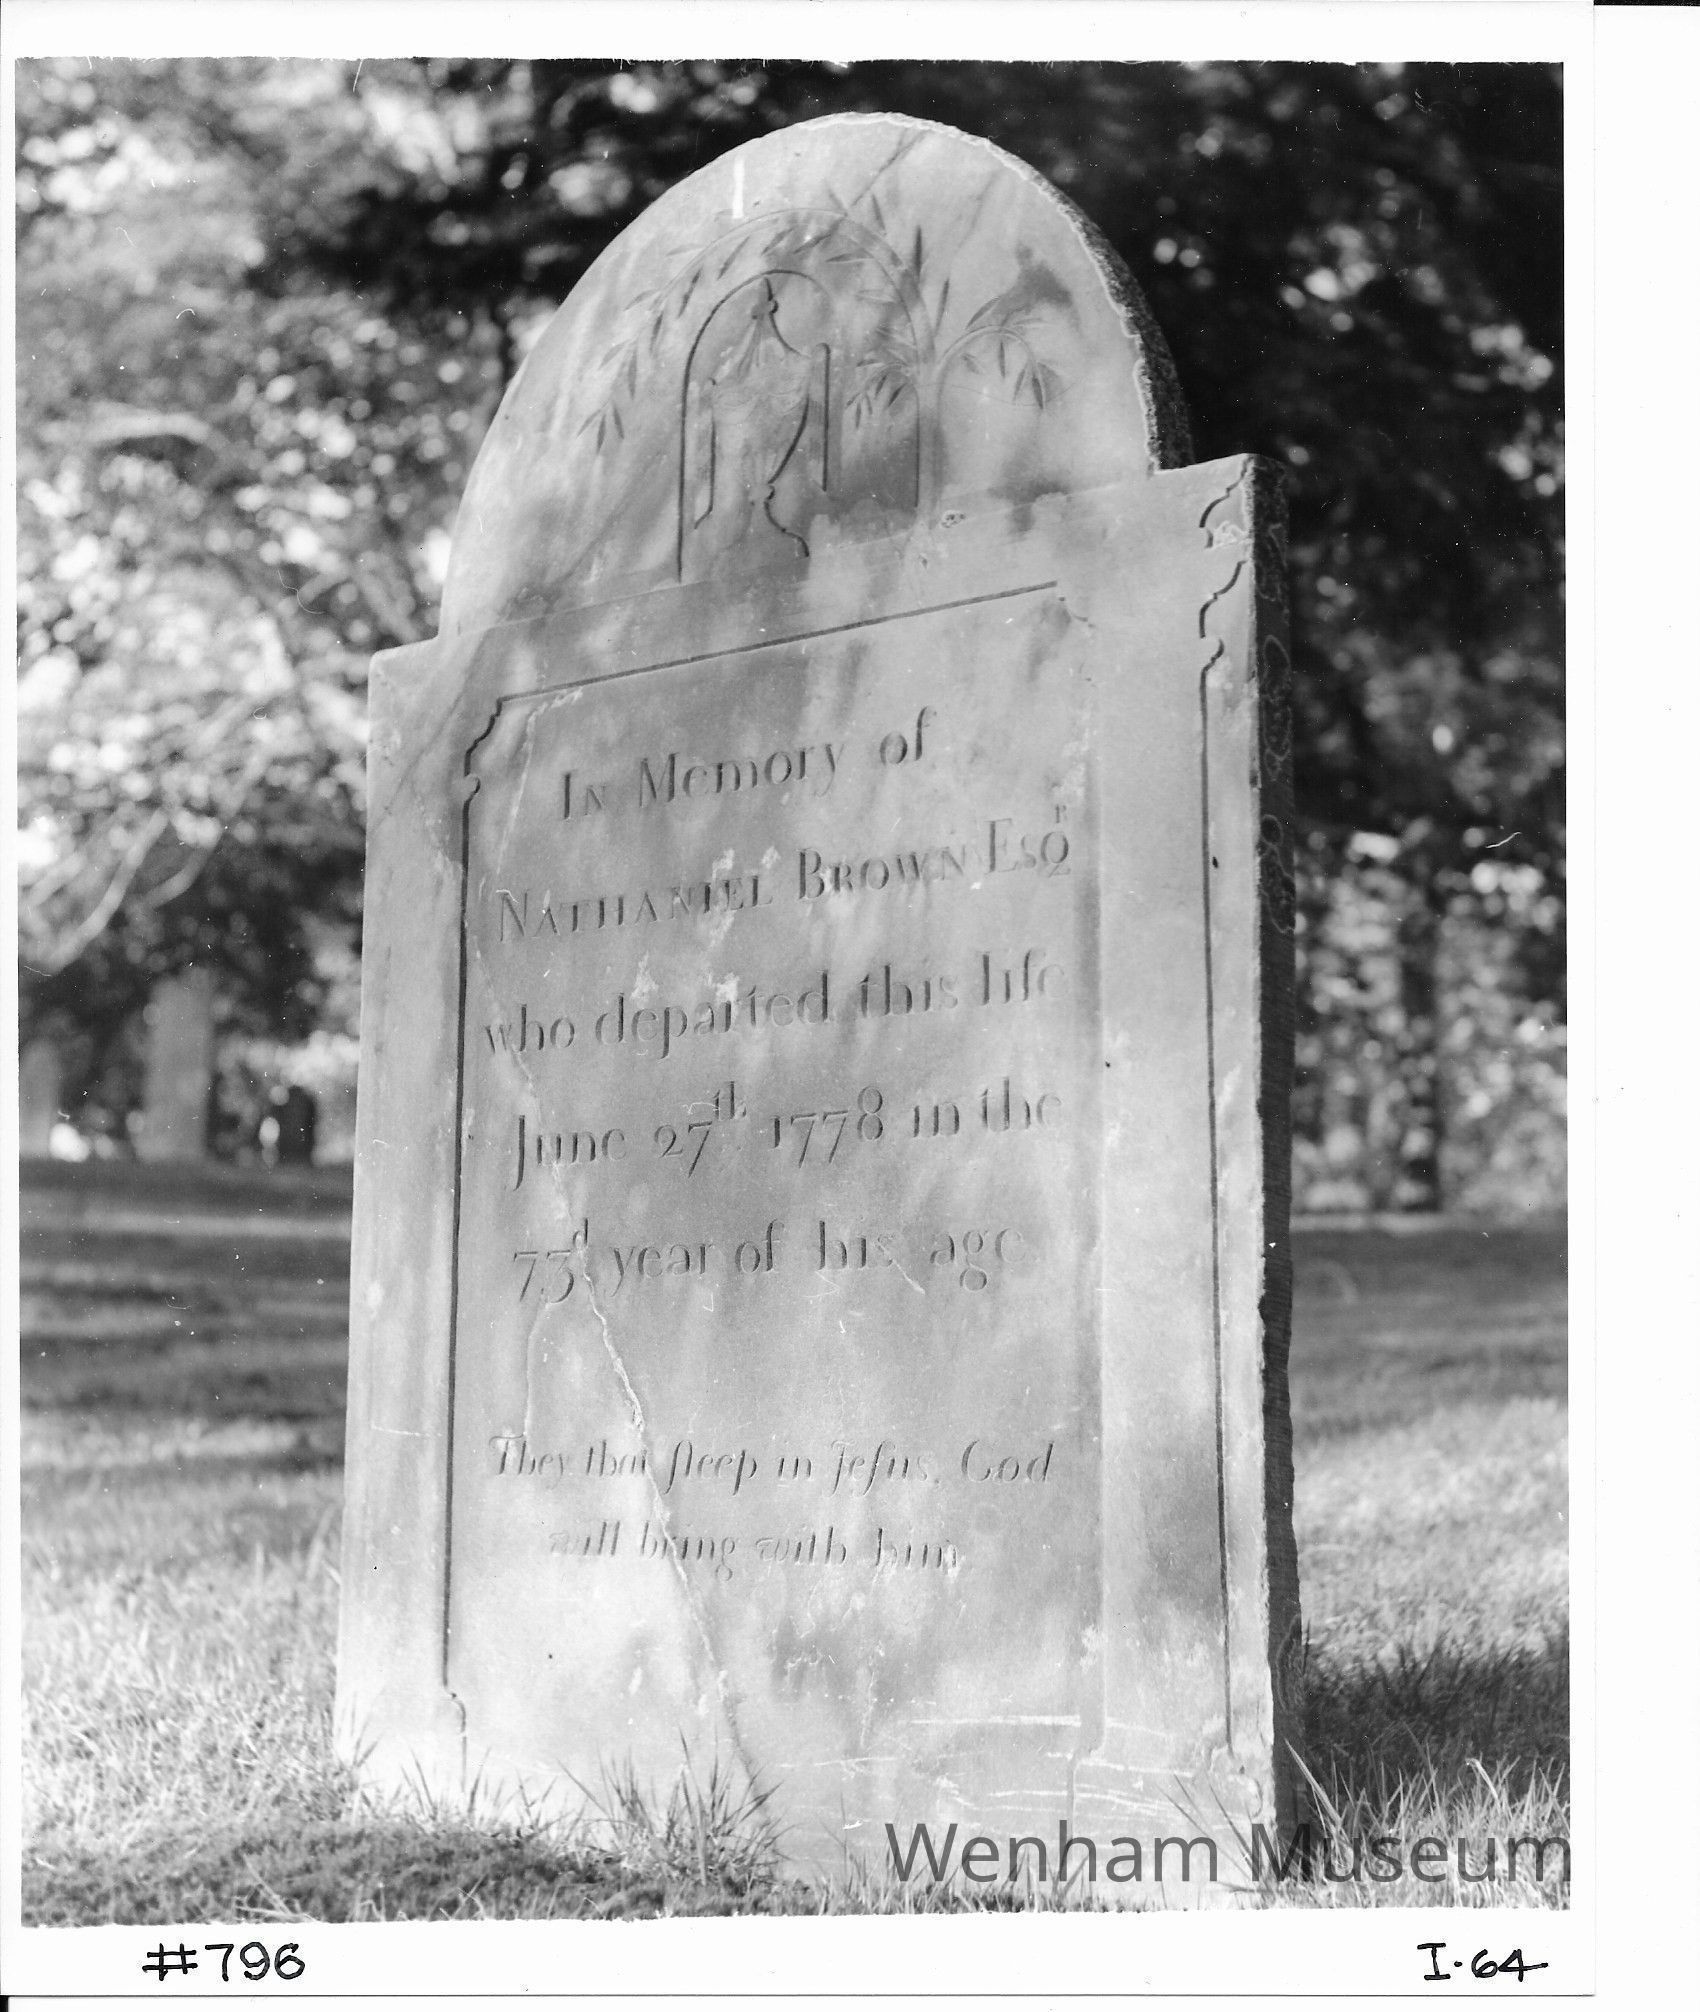 In Memory of
NATHANIEL BROWN Esqr
who departed this life
June 27th 1778 in the
73d year of his age
They that ſleep in Jeſus, God
will bring with him
Wenham Museum
#796
I-64